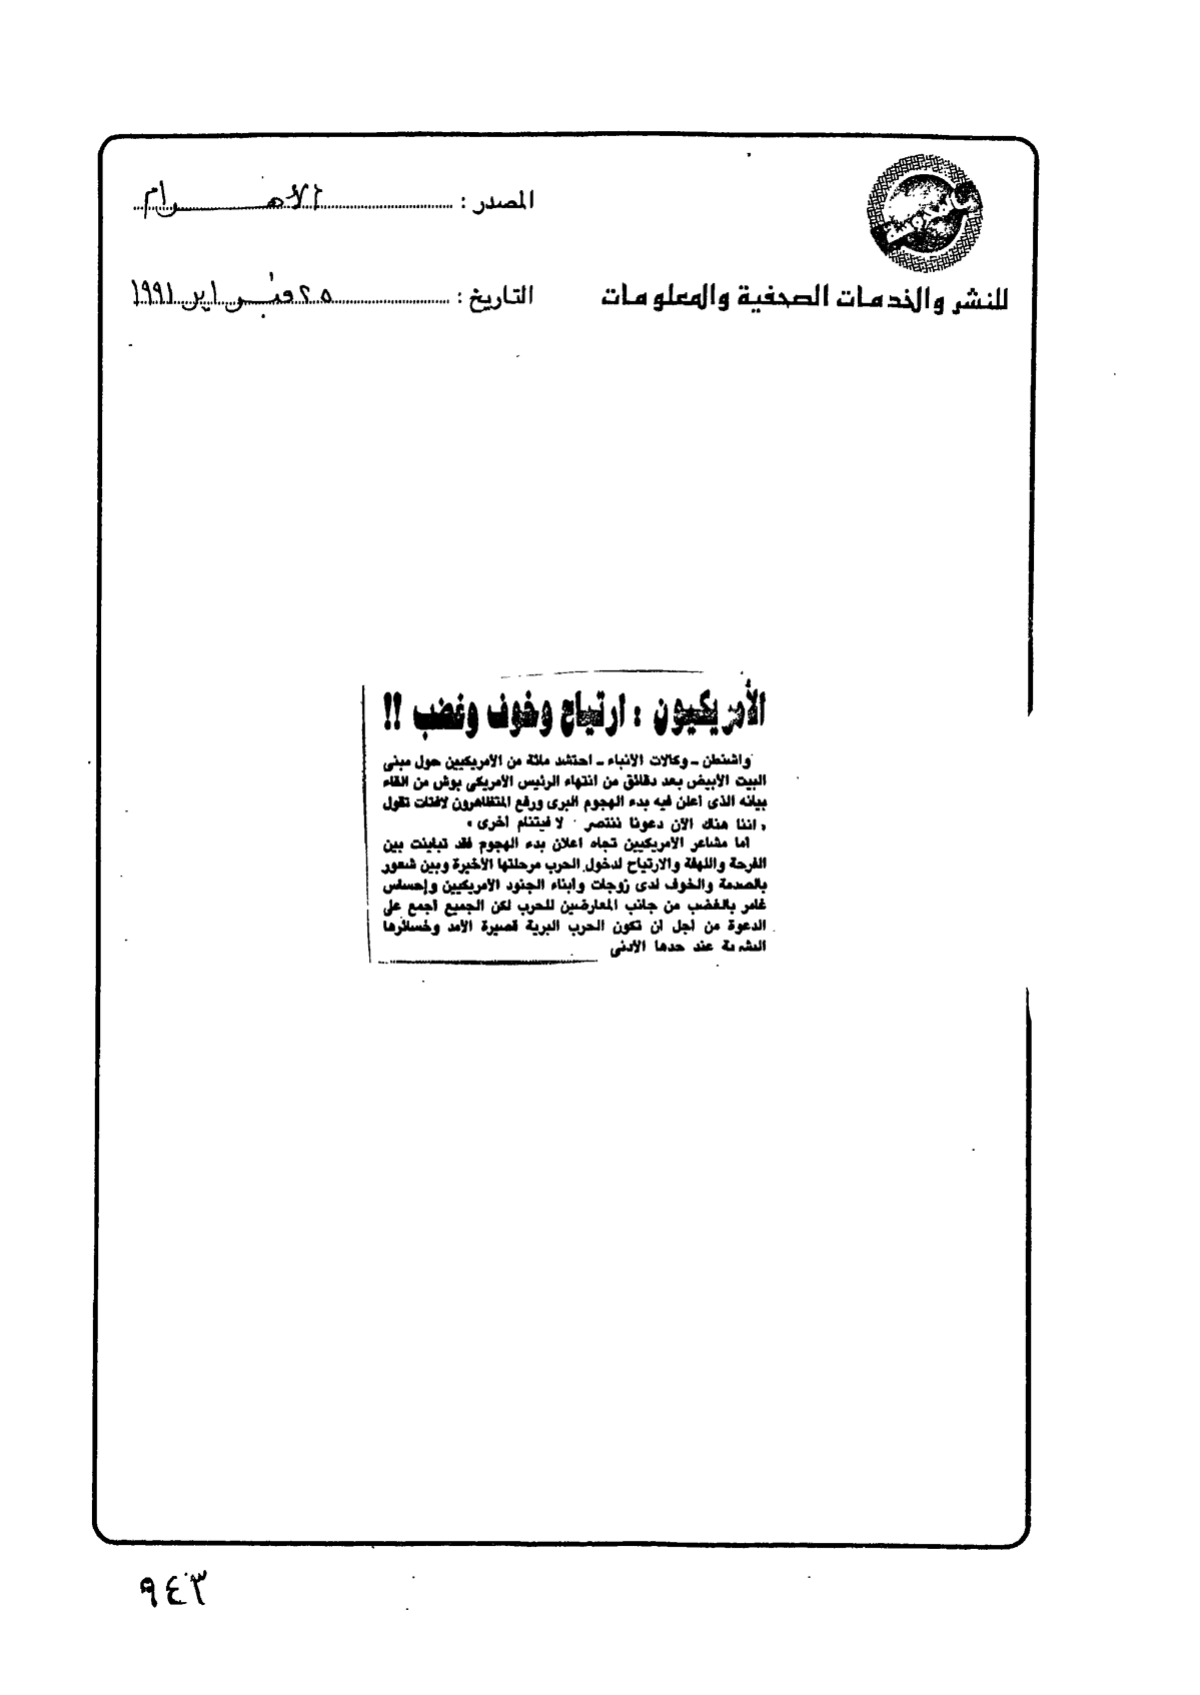 المصدر : الأهرام
للنشر والخدمات الصحفية والمعلومات
التاريخ : ٢٥ فبراير ١٩٩١
الأمريكيون : ارتياح وخوف وغضب !!
واشنطن - وكالات الأنباء - احتشد مائة من الأمريكيين حول مبنى
البيت الأبيض بعد دقائق من انتهاء الرئيس الأمريكى بوش من القاء
بيانه الذى أعلن فيه بدء الهجوم البرى ورفع المتظاهرون لافتات تقول
« اننا هناك الآن دعونا ننتصر . لا فيتنام أخرى »
أما مشاعر الأمريكيين تجاه اعلان بدء الهجوم فقد تباينت بين
الفرحة واللهفة والارتياح لدخول الحرب مرحلتها الأخيرة وبين شعور
بالصدمة والخوف لدى زوجات وأبناء الجنود الأمريكيين وإحساس
غامر بالغضب من جانب المعارضين للحرب لكن الجميع أجمع على
الدعوة من أجل أن تكون الحرب البرية قصيرة الأمد وخسائرها
البشرية عند حدها الأدنى
٩٤٣